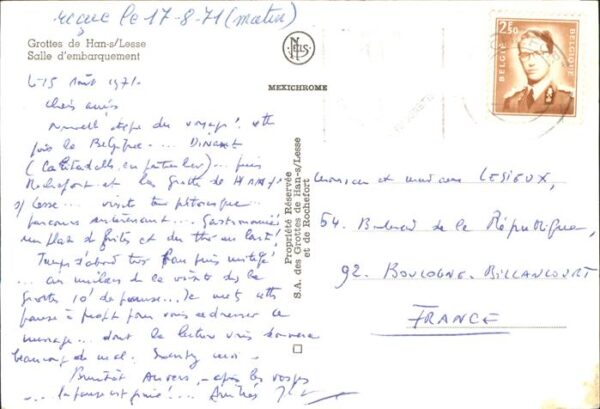 reçue le 17-8-71 (matin)
Grottes de Han-s/Lesse
Salle d'embarquement
MEXICHROME
NELS
2F50
BELGIE-BELGIQUE
Le 15 Août 1971.
Chers amis
Nouvelle étape du voyage! cette
fois la Belgique... DINANT
(la citadelle en particulier)... puis
Rochefort et les Grottes de HAN
s/Lesse... visite très pittoresque
parcours intéressant... Gastronomie
un plat de frites et du thé au lait!
Temps d'abord très beau puis mitigé
... au milieu de la visite des
Grottes 10' de pause... Je mets cette
pause à profit pour vous adresser ce
message... dont la lecture vous donnera
beaucoup de mal.
Bientôt Anvers, - après les Vosges
... la pause est finie!... Amitiés
Propriété Réservée
S.A. des Grottes de Han-s/Lesse
et de Rochefort
Monsieur et madame LESIEUX,
54, Boulevard de la République,
92. BOULOGNE-BILLANCOURT
FRANCE